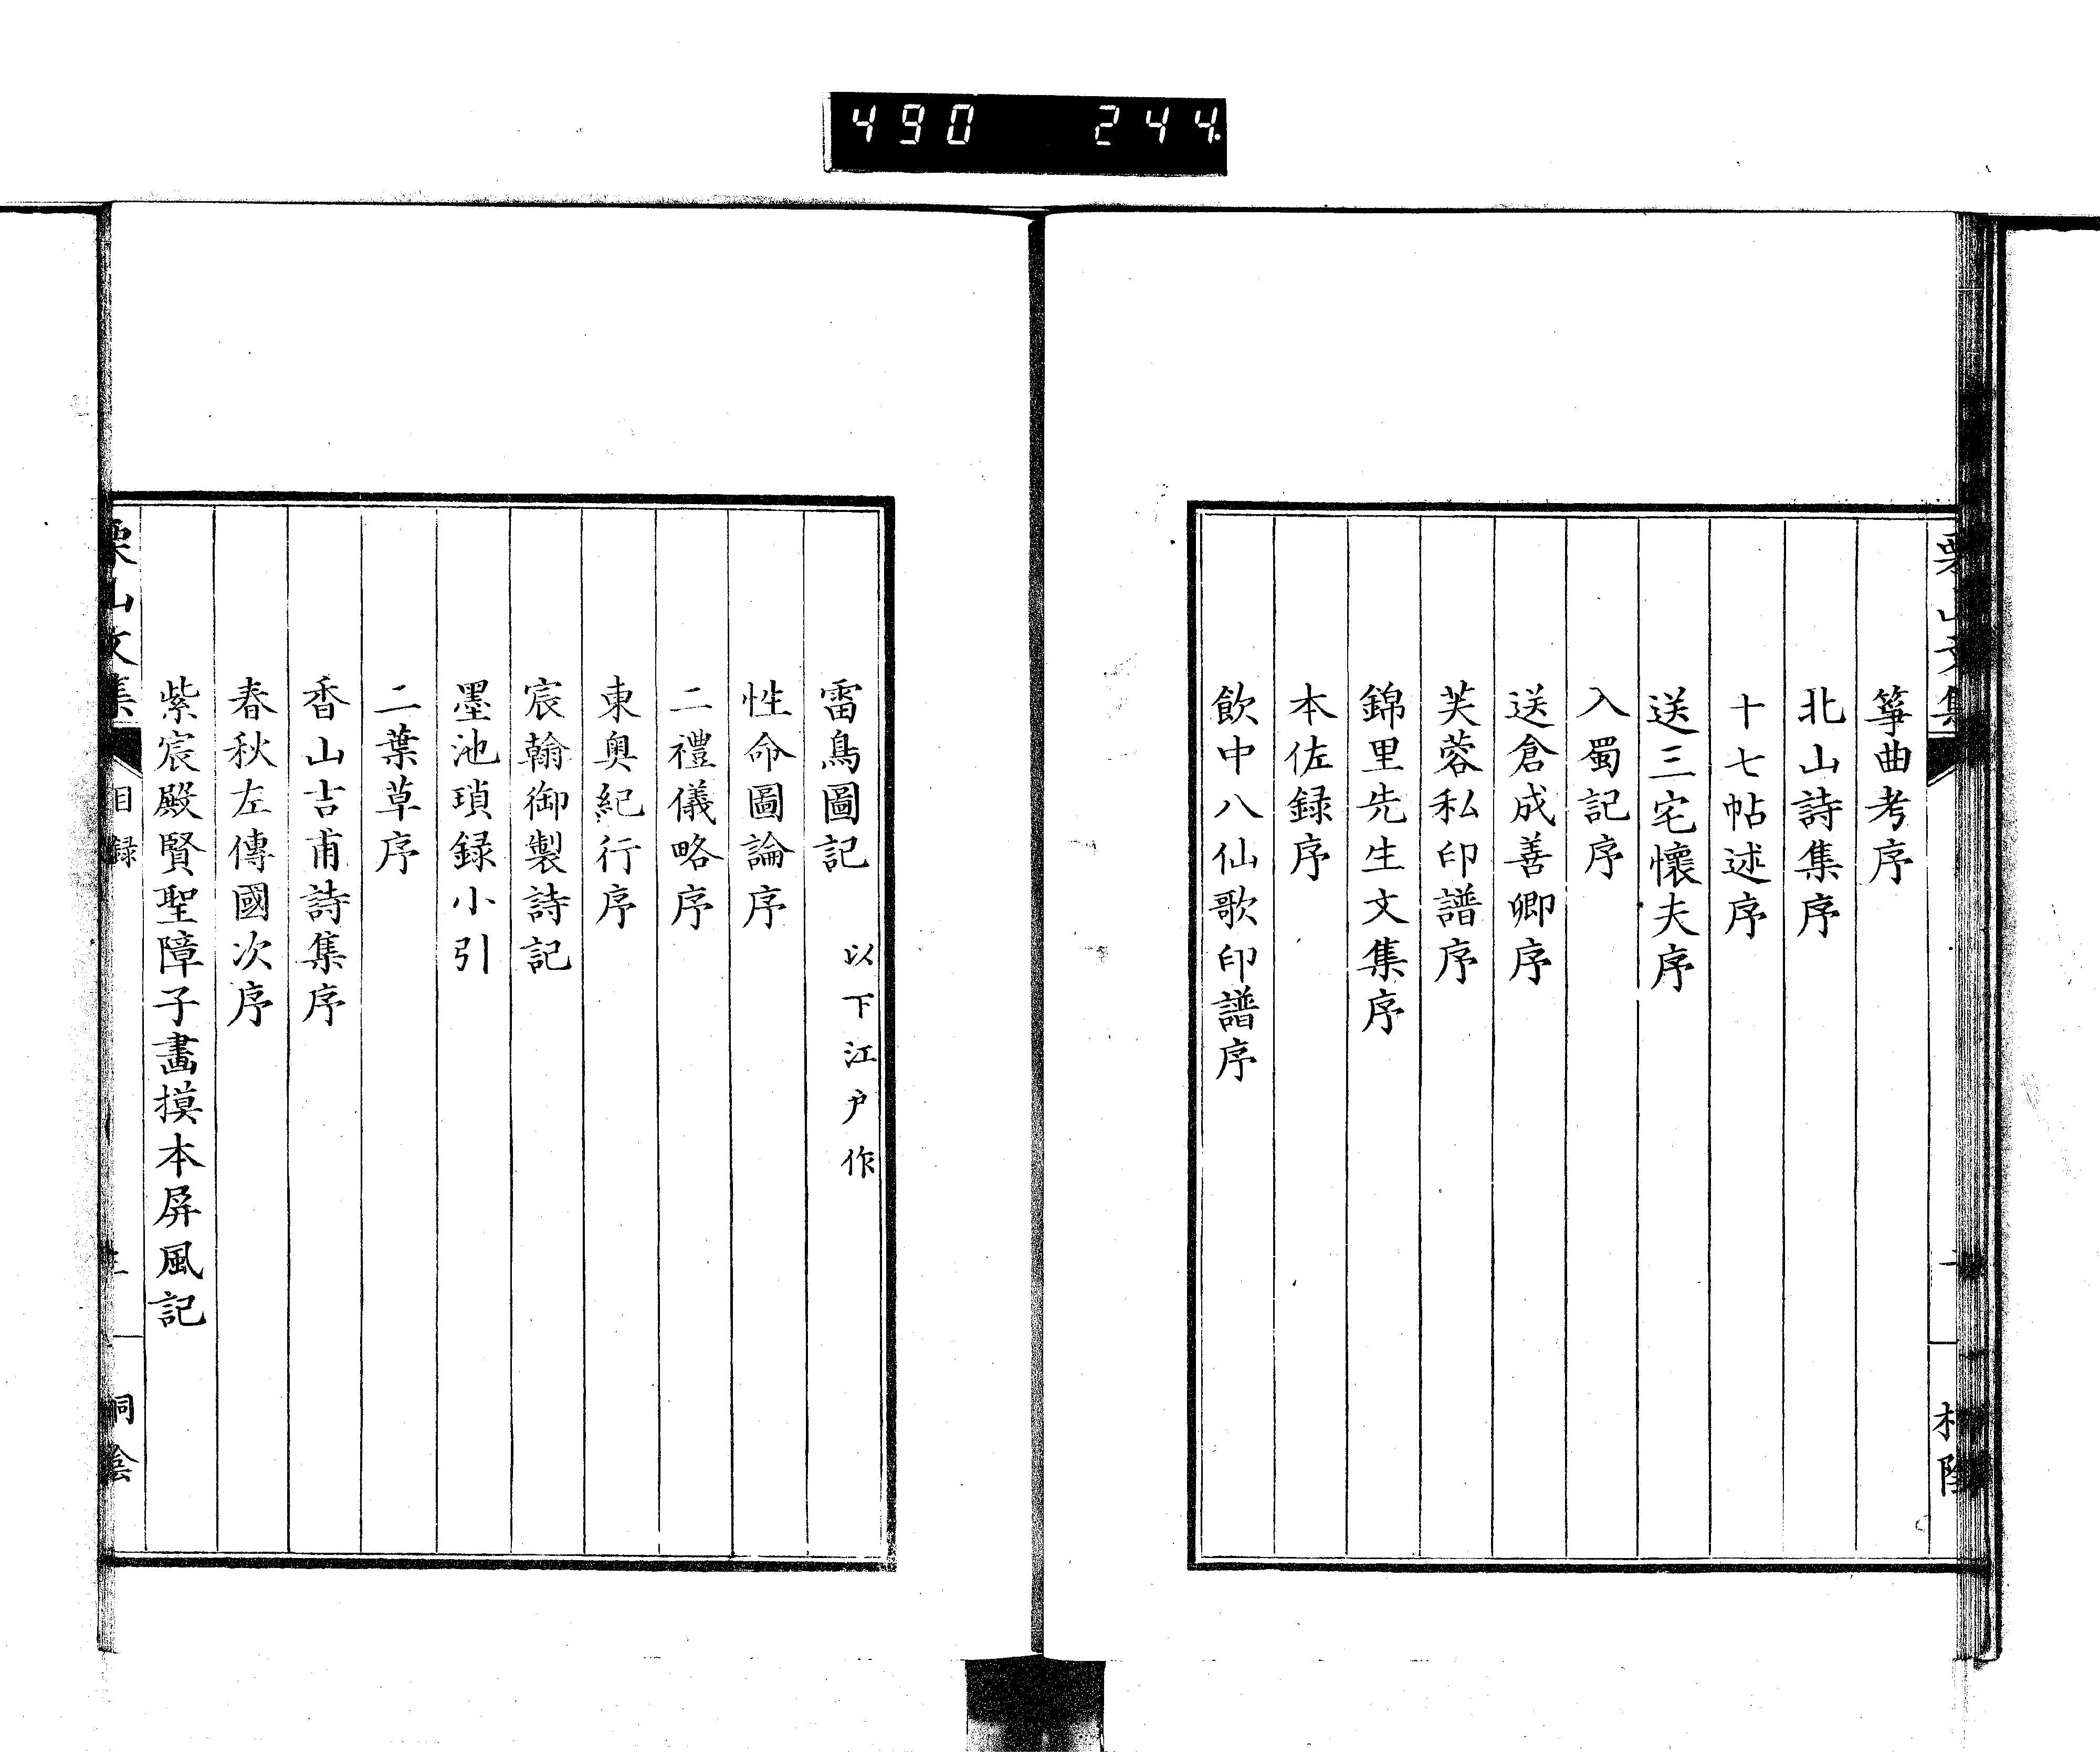 490 244
箏曲考序
北山詩集序
十七帖述序
送三宅懷夫序
入蜀記序
送倉成善卿序
芙蓉私印譜序
錦里先生文集序
本佐録序
飲中八仙歌印譜序
雷鳥圖記 以下江戸作
性命圖論序
二禮儀略序
東奥紀行序
宸翰御製詩記
墨池瑣録小引
二葉草序
香山吉甫詩集序
春秋左傳國次序
紫宸殿賢聖障子畫摸本屏風記
栗山文集 目録